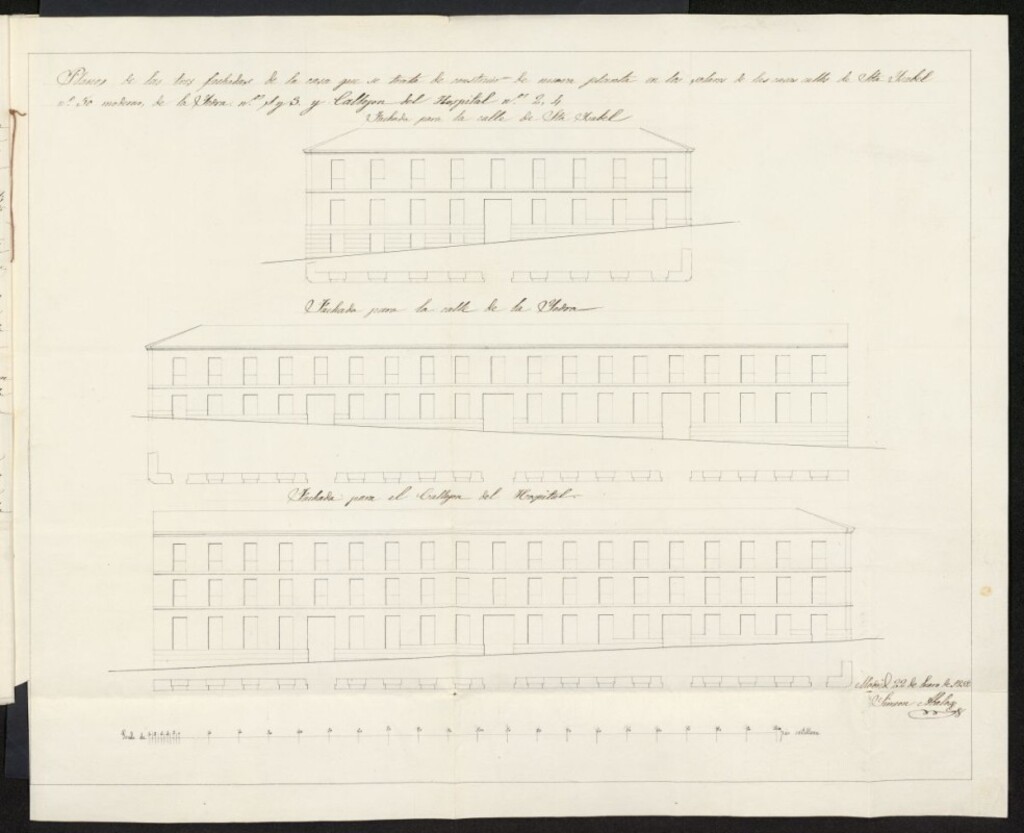 Plano de las tres fachadas de la casa que se trata de construir de nueva planta en los solares de las casas calle de Sta. Isabel
nº 30 moderno, de la Yedra nos. 1 y 3 y Callejon del Hospital nos. 2, 4
Fachada para la calle de Sta. Isabel
Fachada para la calle de la Yedra
Fachada para el Callejon del Hospital
Madrid 22 de Enero de
Simeon
Escala de pies castellanos